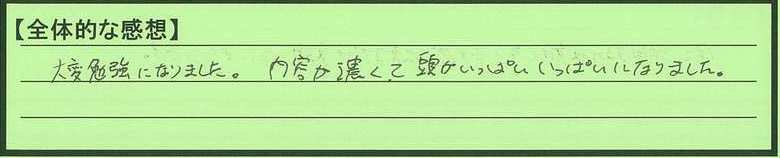 【全体的な感想】
大変勉強になりました。内容が濃くて頭がいっぱいいっぱいになりました。